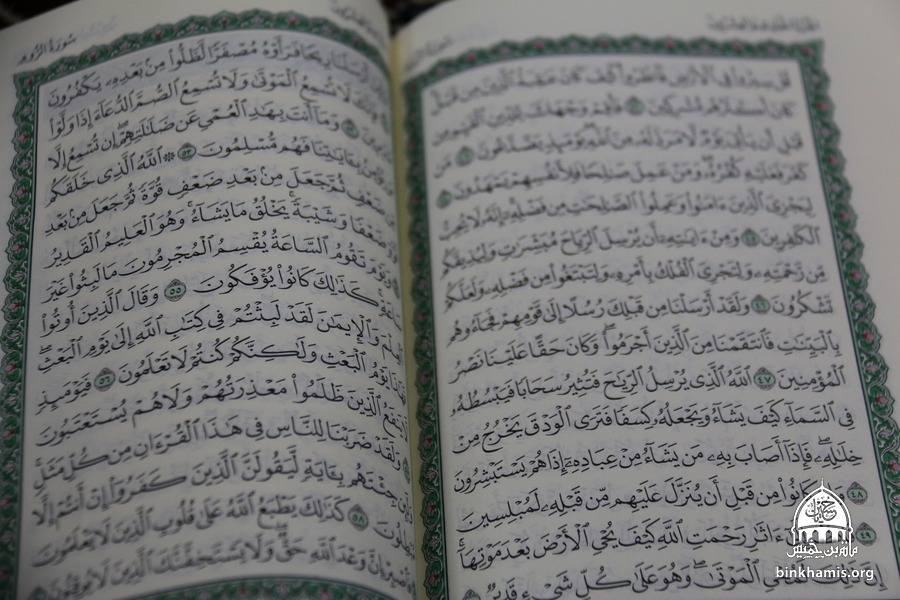 الجزء الحادي والعشرون
قُلْ سِيرُوا۟ فِى ٱلْأَرْضِ فَٱنظُرُوا۟ كَيْفَ كَانَ عَٰقِبَةُ ٱلَّذِينَ مِن قَبْلُ
كَانَ أَكْثَرُهُم مُّشْرِكِينَ ٤٢ فَأَقِمْ وَجْهَكَ لِلدِّينِ ٱلْقَيِّمِ مِن
قَبْلِ أَن يَأْتِىَ يَوْمٌ لَّا مَرَدَّ لَهُۥ مِنَ ٱللَّهِ يَوْمَئِذٍ يَصَّدَّعُونَ ٤٣ مَن
كَفَرَ فَعَلَيْهِ كُفْرُهُۥ وَمَنْ عَمِلَ صَٰلِحًا فَلِأَنفُسِهِمْ يَمْهَدُونَ ٤٤
لِيَجْزِىَ ٱلَّذِينَ ءَامَنُوا۟ وَعَمِلُوا۟ ٱلصَّٰلِحَٰتِ مِن فَضْلِهِۦٓ إِنَّهُۥ لَا يُحِبُّ
ٱلْكَٰفِرِينَ ٤٥ وَمِنْ ءَايَٰتِهِۦٓ أَن يُرْسِلَ ٱلرِّيَاحَ مُبَشِّرَٰتٍ وَلِيُذِيقَكُم
مِّن رَّحْمَتِهِۦ وَلِتَجْرِىَ ٱلْفُلْكُ بِأَمْرِهِۦ وَلِتَبْتَغُوا۟ مِن فَضْلِهِۦ وَلَعَلَّكُمْ
تَشْكُرُونَ ٤٦ وَلَقَدْ أَرْسَلْنَا مِن قَبْلِكَ رُسُلًا إِلَىٰ قَوْمِهِمْ فَجَآءُوهُم
بِٱلْبَيِّنَٰتِ فَٱنتَقَمْنَا مِنَ ٱلَّذِينَ أَجْرَمُوا۟ ۖ وَكَانَ حَقًّا عَلَيْنَا نَصْرُ
ٱلْمُؤْمِنِينَ ٤٧ ٱللَّهُ ٱلَّذِى يُرْسِلُ ٱلرِّيَٰحَ فَتُثِيرُ سَحَابًا فَيَبْسُطُهُۥ
فِى ٱلسَّمَآءِ كَيْفَ يَشَآءُ وَيَجْعَلُهُۥ كِسَفًا فَتَرَى ٱلْوَدْقَ يَخْرُجُ مِنْ
خِلَٰلِهِۦ ۖ فَإِذَآ أَصَابَ بِهِۦ مَن يَشَآءُ مِنْ عِبَادِهِۦٓ إِذَا هُمْ يَسْتَبْشِرُونَ
٤٨ وَإِن كَانُوا۟ مِن قَبْلِ أَن يُنَزَّلَ عَلَيْهِم مِّن قَبْلِهِۦ لَمُبْلِسِينَ
٤٩ ءَاثَٰرِ رَحْمَتِ ٱللَّهِ كَيْفَ يُحْىِ ٱلْأَرْضَ بَعْدَ مَوْتِهَآ ۚ
إِنَّ ذَٰلِكَ لَمُحْىِ ٱلْمَوْتَىٰ ۖ وَهُوَ عَلَىٰ كُلِّ شَىْءٍ قَدِيرٌ
سورة الروم
أَرْسَلْنَا رِيحًا فَرَأَوْهُ مُصْفَرًّا لَّظَلُّوا۟ مِنۢ بَعْدِهِۦ يَكْفُرُونَ
لَا تُسْمِعُ ٱلْمَوْتَىٰ وَلَا تُسْمِعُ ٱلصُّمَّ ٱلدُّعَآءَ إِذَا وَلَّوْا۟
وَمَآ أَنتَ بِهَٰدِ ٱلْعُمْىِ عَن ضَلَٰلَتِهِمْ ۖ إِن تُسْمِعُ إِلَّا
بِـَٔايَٰتِنَا فَهُم مُّسْلِمُونَ ٥٣ ۞ ٱللَّهُ ٱلَّذِى خَلَقَكُم
ضَعْفٍ ثُمَّ جَعَلَ مِنۢ بَعْدِ ضَعْفٍ قُوَّةً ثُمَّ جَعَلَ مِنۢ بَعْدِ
ضَعْفًا وَشَيْبَةً ۚ يَخْلُقُ مَا يَشَآءُ ۖ وَهُوَ ٱلْعَلِيمُ ٱلْقَدِيرُ
وَيَوْمَ تَقُومُ ٱلسَّاعَةُ يُقْسِمُ ٱلْمُجْرِمُونَ مَا لَبِثُوا۟ غَيْرَ
سَاعَةٍ ۚ كَذَٰلِكَ كَانُوا۟ يُؤْفَكُونَ ٥٥ وَقَالَ ٱلَّذِينَ أُوتُوا۟
ٱلْعِلْمَ وَٱلْإِيمَٰنَ لَقَدْ لَبِثْتُمْ فِى كِتَٰبِ ٱللَّهِ إِلَىٰ يَوْمِ ٱلْبَعْثِ ۖ
فَهَٰذَا يَوْمُ ٱلْبَعْثِ وَلَٰكِنَّكُمْ كُنتُمْ لَا تَعْلَمُونَ ٥٦ فَيَوْمَئِذٍ
لَّا يَنفَعُ ٱلَّذِينَ ظَلَمُوا۟ مَعْذِرَتُهُمْ وَلَا هُمْ يُسْتَعْتَبُونَ
وَلَقَدْ ضَرَبْنَا لِلنَّاسِ فِى هَٰذَا ٱلْقُرْءَانِ مِن كُلِّ مَثَلٍ ۚ
وَلَئِن جِئْتَهُم بِـَٔايَةٍ لَّيَقُولَنَّ ٱلَّذِينَ كَفَرُوٓا۟ إِنْ أَنتُمْ إِلَّا
مُبْطِلُونَ ٥٨ كَذَٰلِكَ يَطْبَعُ ٱللَّهُ عَلَىٰ قُلُوبِ ٱلَّذِينَ لَا يَعْلَمُونَ
فَٱصْبِرْ إِنَّ وَعْدَ ٱللَّهِ حَقٌّ ۖ وَلَا يَسْتَخِفَّنَّكَ ٱلَّذِينَ لَا يُوقِنُونَ
binkhamis.org